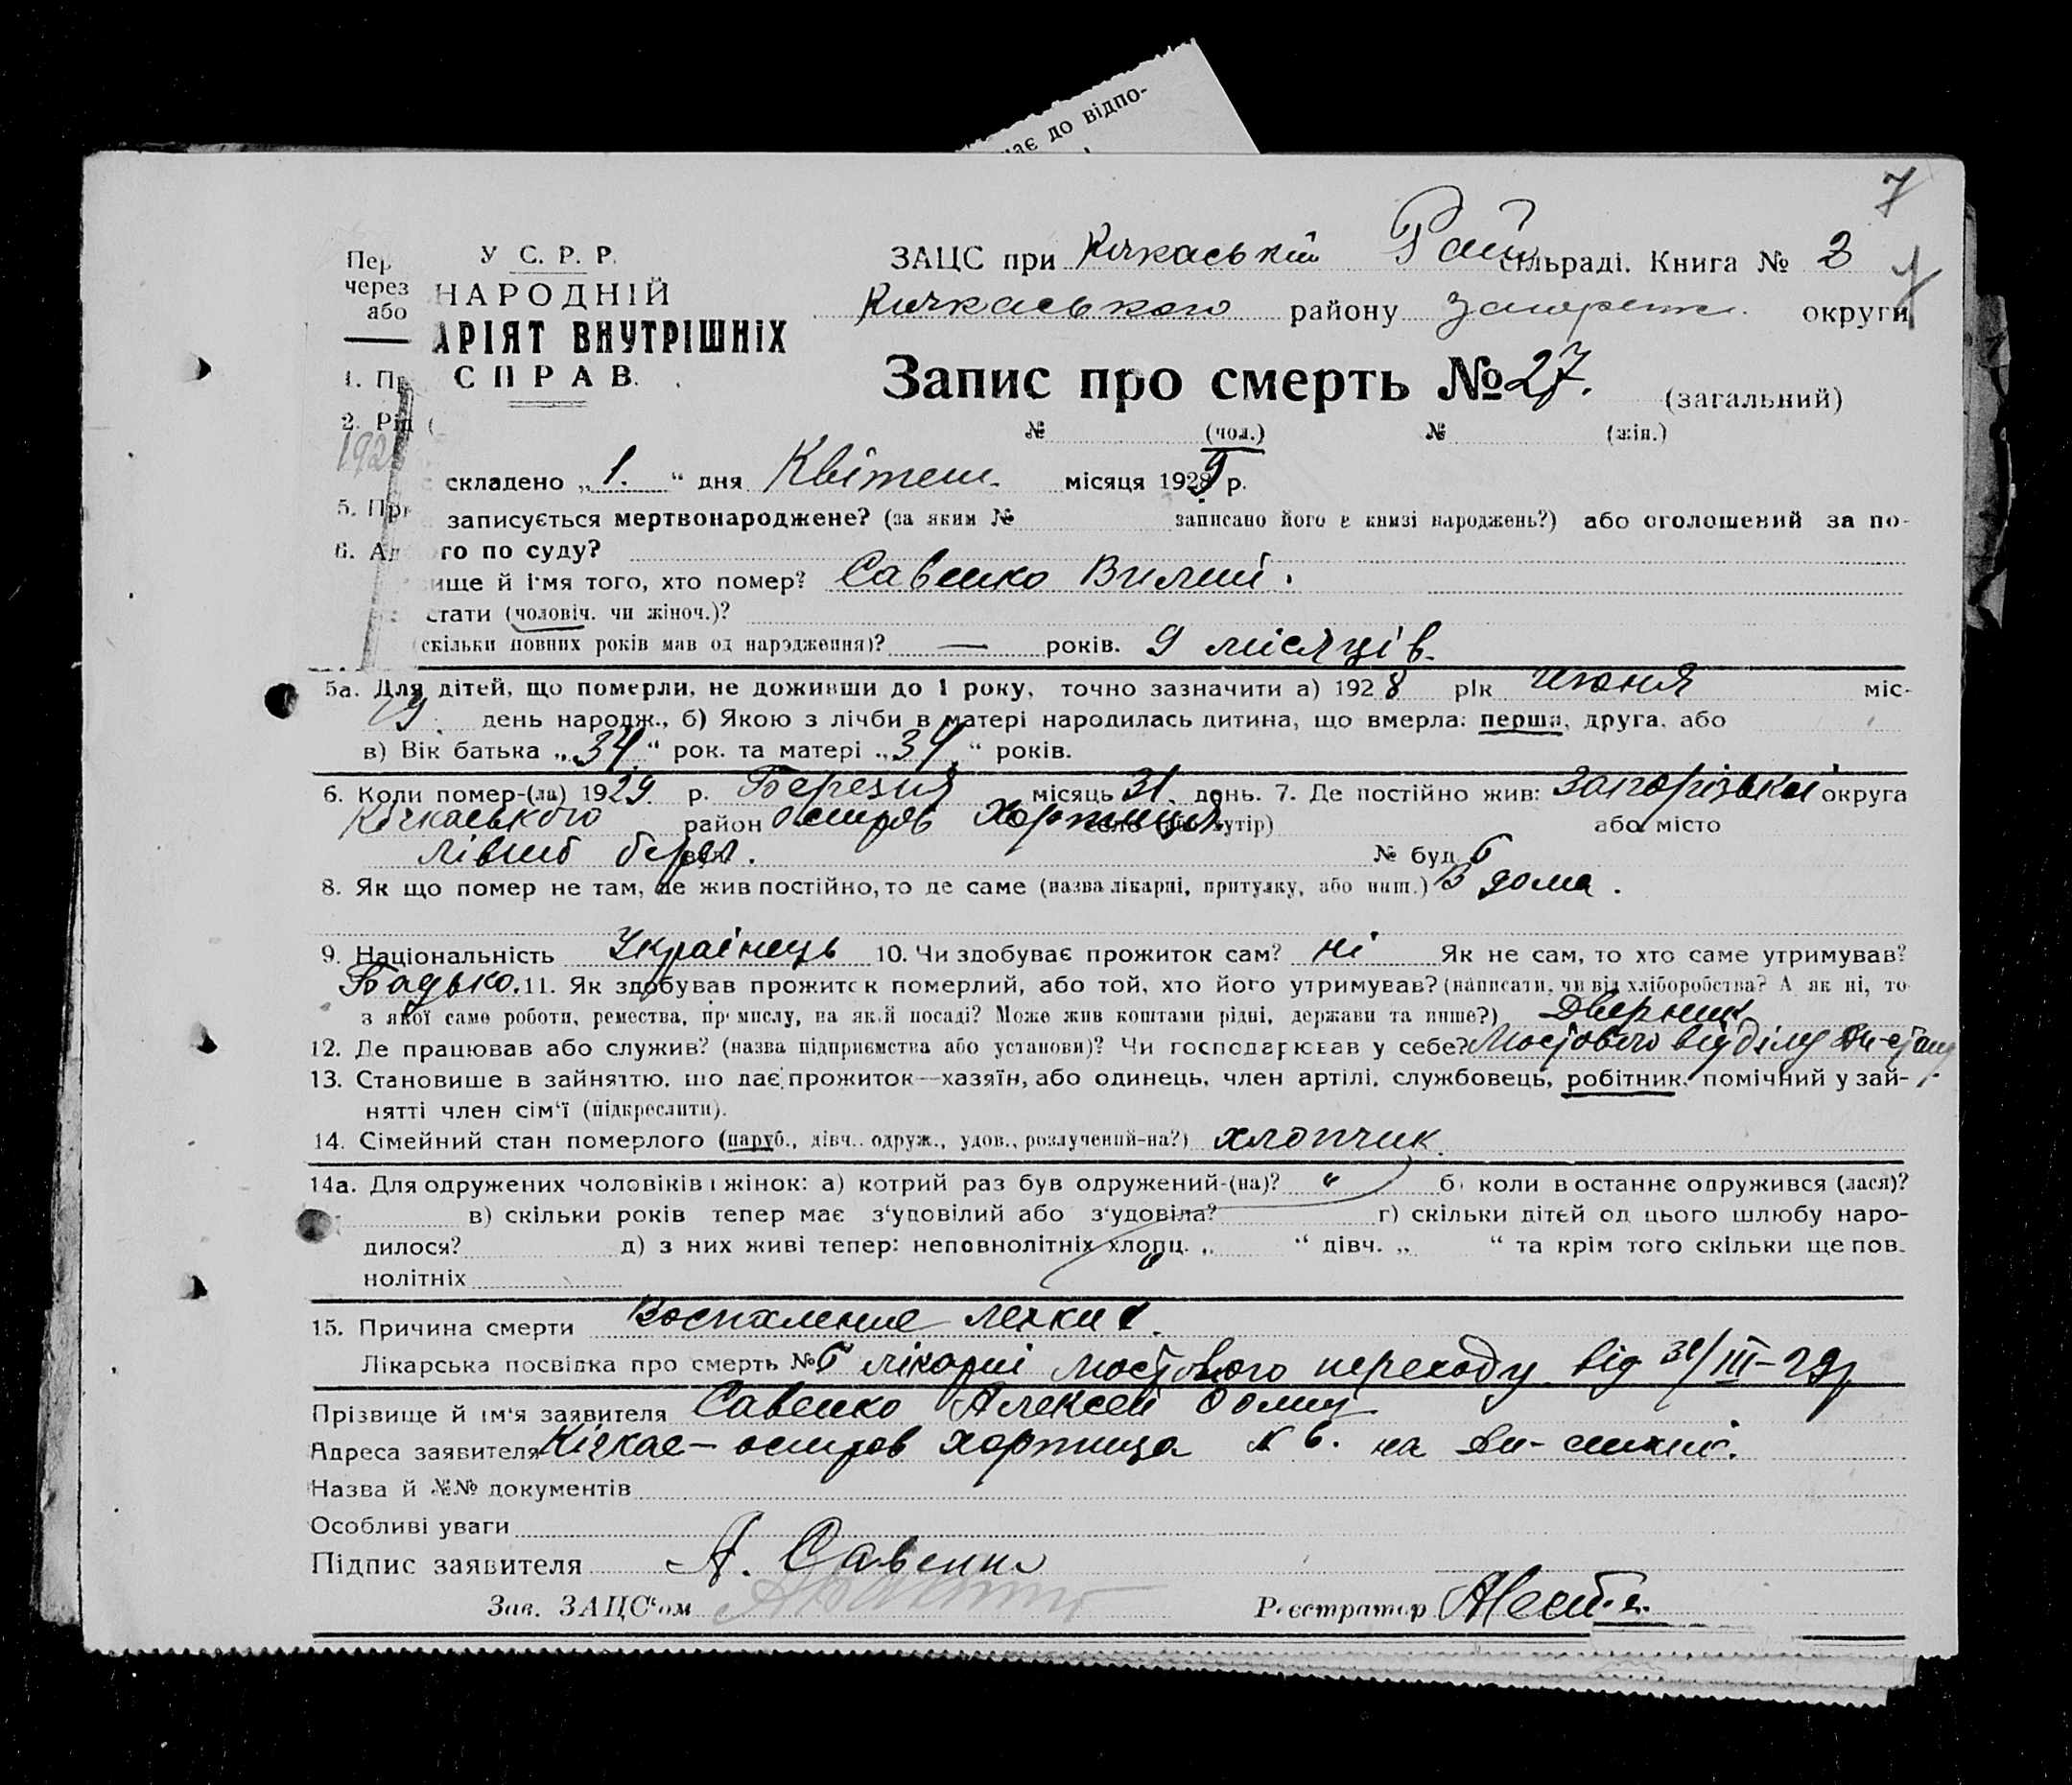 ває до відпо-
7
Пер
через
або
У С. Р. Р.
НАРОДНІЙ
АРІЯТ ВНУТРІШНІХ
СПРАВ.
ЗАЦС при Кічкаській Рай сільраді. Книга № 2
Кичкаського району Запоріж. округи
Запис про смерть № 27. (загальний)
№ (чол.) № (жін.)
1. Пр
2. Рід (
192
складено „1.“ дня Квітня місяця 1929 р.
5. При
записується мертвонароджене? (за яким № записано його в книзі народжень?) або оголошений за по-
6. Ад
го по суду?
ище й ім'я того, хто помер? Савенко Вилий.
стати (чоловіч. чи жіноч.)?
(скільки повних років мав од народження)? — років. 9 місяців.
5а. Для дітей, що померли, не доживши до 1 року, точно зазначити а) 1928 рік июня міс-
день народж., б) Якою з лічби в матері народилась дитина, що вмерла: перша, друга, або
в) Вік батька „34“ рок. та матері „34“ років.
6. Коли помер-(ла) 1929 р. Березня місяць 31. день. 7. Де постійно жив: Запорізька округа
Кічкаського район остров Хортиця село (хутір) або місто
лівий берег. № буд. Б
8. Як що помер не там, де жив постійно, то де саме (назва лікарні, притулку, або инш.) В дома.
9. Національність Українець 10. Чи здобуває прожиток сам? ні Як не сам, то хто саме утримував?
Бадько. 11. Як здобував прожиток померлий, або той, хто його утримував? (написати, чи від хліборобства? А як ні, то
з якої саме роботи, ремества, промислу, на якій посаді? Може жив коштами рідні, держави та инше?) Дверник
12. Де працював або служив? (назва підприємства або установи)? Чи господарював у себе? Мостового відділу
13. Становище в зайняттю, що дає прожиток—хазяїн, або одинець, член артілі, службовець, робітник, помічний у зай-
нятті член сім'ї (підкреслити).
14. Сімейний стан померлого (паруб., дівч. одруж., удов., розлучений-на?) хлопчик.
14а. Для одружених чоловіків і жінок: а) котрий раз був одружений-(на)? „ б) коли в останнє одружився (лася)?
в) скільки років тепер має з'уповілий або з'удовіла? г) скільки дітей од цього шлюбу наро-
дилося? д) з них живі тепер: неповнолітніх хлопц. „ “ дівч. „ “ та крім того скільки ще пов-
нолітніх
15. Причина смерти Воспаление легких.
Лікарська посвідка про смерть № Б лікарні мостового переходу від 31/III-29р
Прізвище й ім'я заявителя Савенко Алексей
Адреса заявителя Кічкас – остров хортица № 6. на
Назва й №№ документів
Особливі уваги
Підпис заявителя А. Савенко
Зав. ЗАЦС'ом Реєстратор